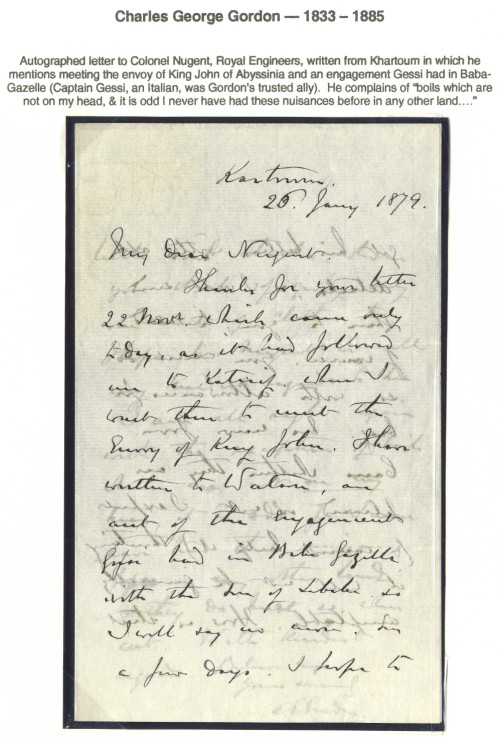 Charles George Gordon — 1833 – 1885
Autographed letter to Colonel Nugent, Royal Engineers, written from Khartoum in which he
mentions meeting the envoy of King John of Abyssinia and an engagement Gessi had in Baba-
Gazelle (Captain Gessi, an Italian, was Gordon's trusted ally). He complains of "boils which are
not on my head, & it is odd I never have had these nuisances before in any other land...."
Kartoum.
My Dear Nugent.
Thanks for your letter
22 Novr. which came only
to day, as it had followed
me to Katarif when I
went then to meet the
Envoy of King John. I have
written to Watson, an
acct of the Engagement
Gessi had in Bahr Gazelle
with the Son of Sebehr so
I will say no more. In
a few days. I hope to